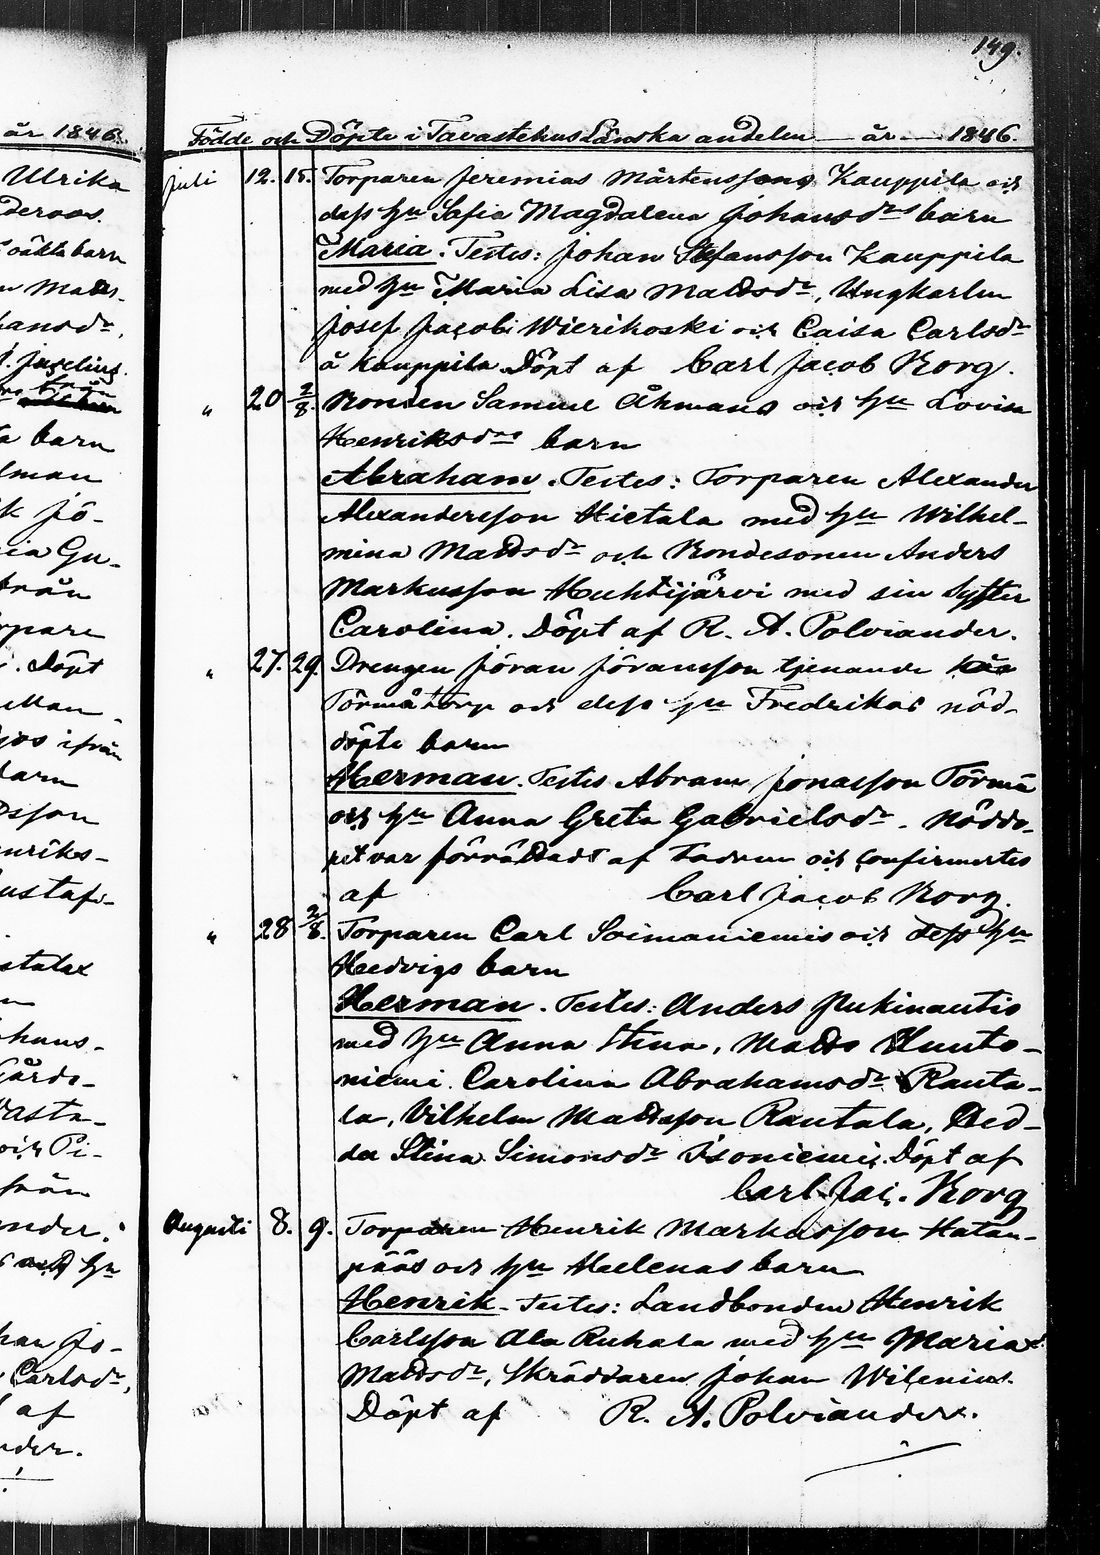 149.
år 1846.
Födde och Döpte i Tavastehus Länska andelen år 1846.
Ulrika
barn
barn
från
Döpt
ifrån
barn
af
Juli 12. 15. Torparen Jeremias Mårtenssons Kauppila och
dess hu Sofia Magdalena Johansdrs barn
Maria. Testes: Johan Stefansson Kauppila
med hu Maria Lisa Mattsdr, Ungkarlen
Josef Jacobi Wierikoski och Caisa Carlsdr
å Kauppila Döpt af Carl Jacob Korg.
" 20 2/8. Bonden Samuel Åkmans och hu Lovisa
Henriksdrs barn
Abraham. Testes: Torparen Alexander
Alexandersson Hietala med hu Wilhel-
mina Mattsdr och Bondesonen Anders
Markusson Huhtijärvi med sin Syster
Carolina. Döpt af R. A. Polviander.
" 27. 29. Drengen Jöran Jöransson tjenande
Törmä torp och dess hu Fredrikas nöd-
döpte barn
Herman. Testes Abram Jonasson Törmä
och hu Anna Greta Gabrielsdr. Nöddo-
pet var förrättadt af Fadren och confirmertes
af Carl Jacob Korg.
" 28 2/8. Torparen Carl Soimaniemis och dess hu
Hedvigs barn
Herman. Testes: Anders
med hu Anna Stina, Matts Huuto-
niemi. Carolina Abrahamsdr Ranta-
la, Vilhelm Mattsson Rautala, Hed-
da Stina Simonsdr Isoniemi. Döpt af
Carl Jac. Korg
Augusti 8. 9. Torparen Henrik Markusson Hatan-
pääs och hu Helenas barn
Henrik. Testes: Landbonden Henrik
Carlsson Ala Ruhala med hu Maria
Mattsdr, Skräddaren Johan Wilenius.
Döpt af R. A. Polviander.